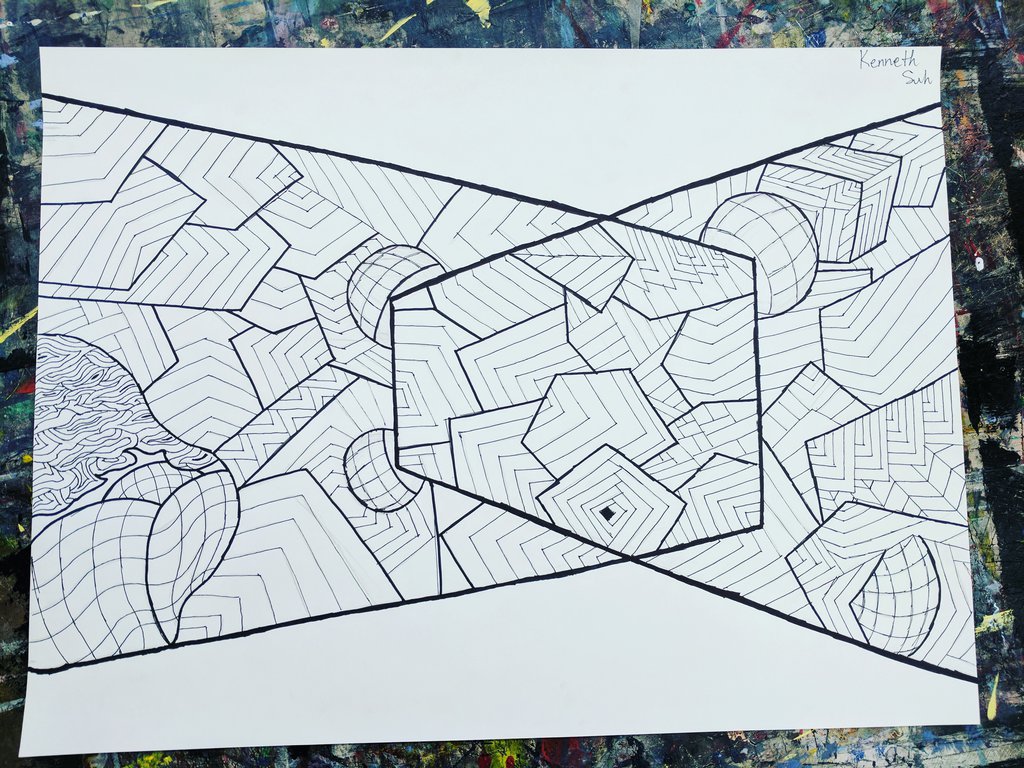 Kenneth
Suh